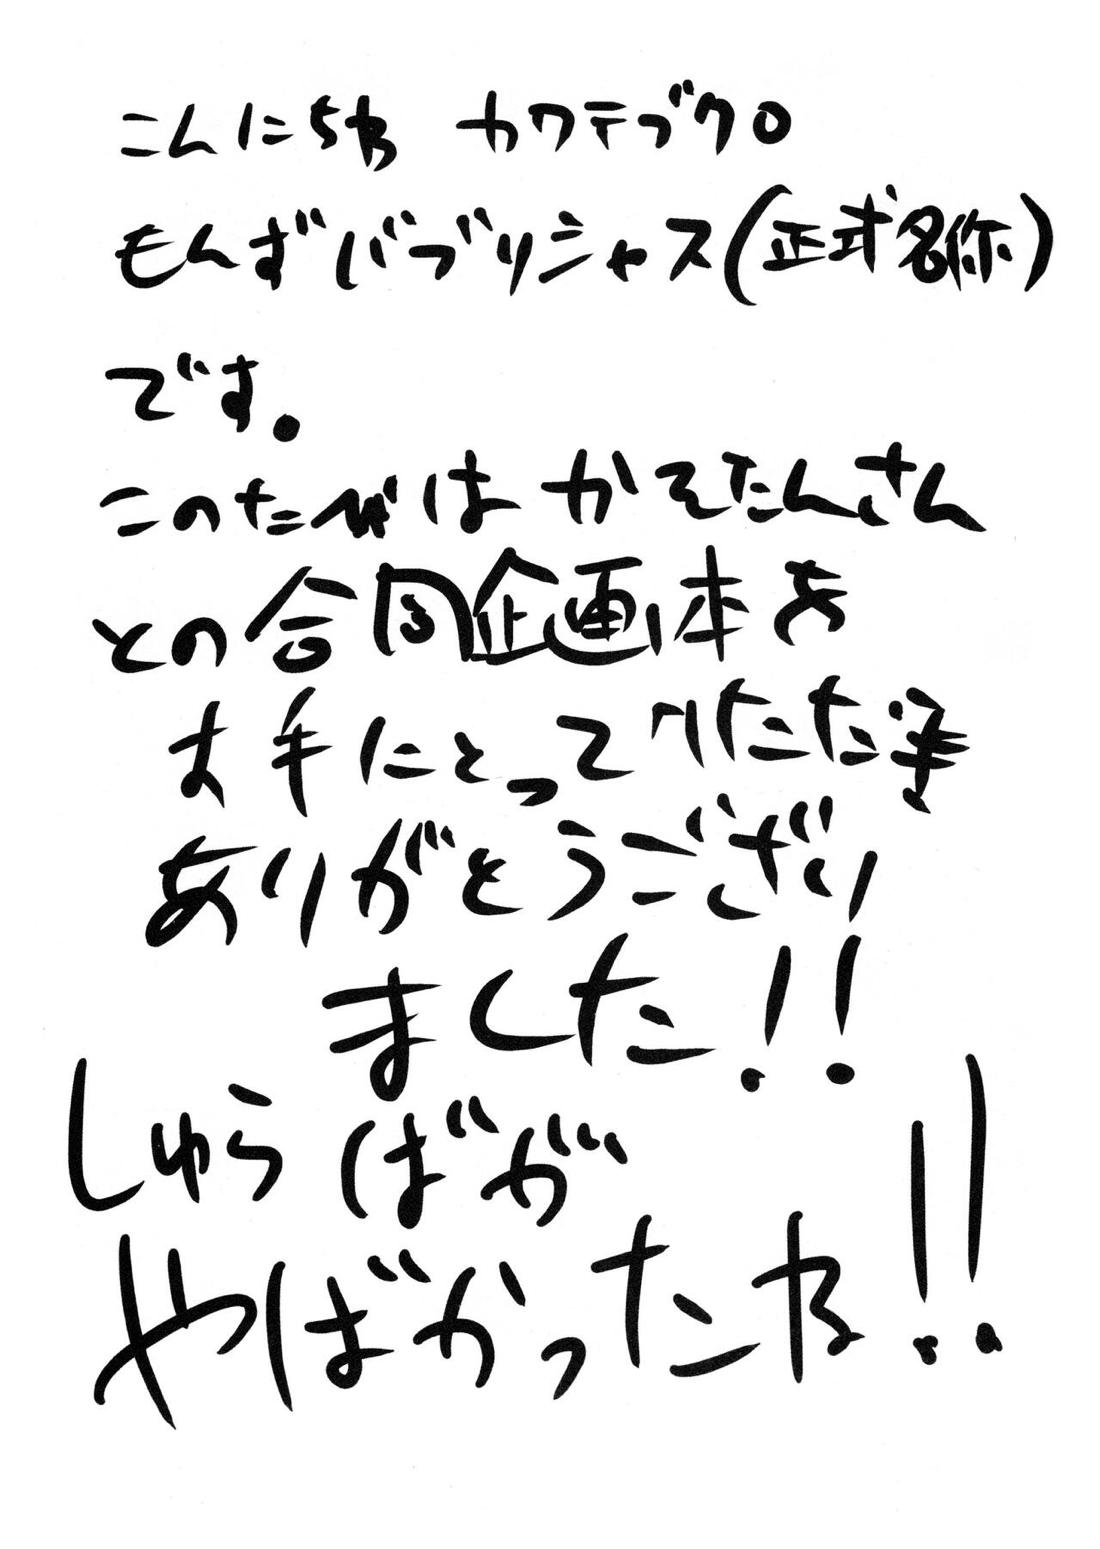 こんにちわ カワテブクロ
もんずバブリシャス(正式名称)
です。
このたびは かてたんさん
との合同企画本を
お手にとって たた き
ありがとうござい
ました!!
しゅらばが
やばかったね!!